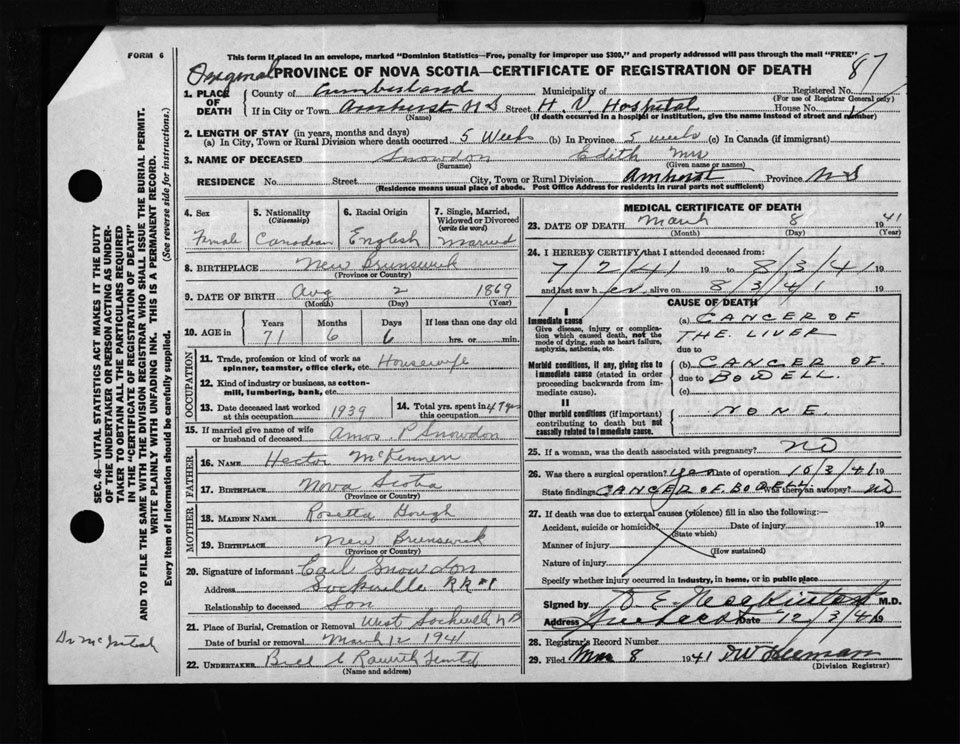 FORM 6
This form if placed in an envelope, marked "Dominion Statistics—Free, penalty for improper use $300," and properly addressed will pass through the mail "FREE"
Original PROVINCE OF NOVA SCOTIA—CERTIFICATE OF REGISTRATION OF DEATH 87
1. PLACE OF DEATH County of Cumberland Municipality of Registered No.
(For use of Registrar General only)
If in City or Town Amherst N S Street H. V Hospital House No.
(Name) (If death occurred in a hospital or institution, give the name instead of street and number)
2. LENGTH OF STAY (in years, months and days)
(a) In City, Town or Rural Division where death occurred 5 Weeks (b) In Province 5 weeks (c) In Canada (if immigrant)
3. NAME OF DECEASED Snowdon Edith Mrs
(Surname) (Given name or names)
RESIDENCE No. Street City, Town or Rural Division Amherst Province N S
(Residence means usual place of abode. Post Office Address for residents in rural parts not sufficient)
4. Sex Female
5. Nationality (Citizenship) Canadian
6. Racial Origin English
7. Single, Married, Widowed or Divorced (write the word) Married
8. BIRTHPLACE New Brunswick
(Province or Country)
9. DATE OF BIRTH Aug 2 1869
(Month) (Day) (Year)
10. AGE in Years Months Days If less than one day old
71 6 6 hrs. or min.
OCCUPATION
11. Trade, profession or kind of work as spinner, teamster, office clerk, etc. Housewife
12. Kind of industry or business, as cotton-mill, lumbering, bank, etc.
13. Date deceased last worked at this occupation 1939
14. Total yrs. spent in this occupation 47 yrs
15. If married give name of wife or husband of deceased Amos P Snowdon
FATHER
16. NAME Hector
17. BIRTHPLACE Nova Scotia
(Province or Country)
MOTHER
18. MAIDEN NAME Rosetta
19. BIRTHPLACE New Brunswick
(Province or Country)
20. Signature of informant Carl Snowdon
Address Sackville RR #1
Relationship to deceased Son
21. Place of Burial, Cremation or Removal West Sackville N B
Date of burial or removal March 12 1941
22. UNDERTAKER
(Name and address)
MEDICAL CERTIFICATE OF DEATH
23. DATE OF DEATH March 8 1941
(Month) (Day) (Year)
24. I HEREBY CERTIFY that I attended deceased from:
7/2/41 19 to 8/3/41 19
and last saw her alive on 8/3/41 19
CAUSE OF DEATH
I
Immediate cause
Give disease, injury or complication which caused death, not the mode of dying, such as heart failure, asphyxia, asthenia, etc.
(a) CANCER OF THE LIVER
due to
Morbid conditions, if any, giving rise to immediate cause (stated in order proceeding backwards from immediate cause).
(b) CANCER OF
due to BOWELL.
(c)
II
Other morbid conditions (if important) contributing to death but not causally related to immediate cause.
NONE
25. If a woman, was the death associated with pregnancy? NO
26. Was there a surgical operation? yes Date of operation 10/3/41 19
State findings CANCER OF BOWELL Was there an autopsy? NO
27. If death was due to external causes (violence) fill in also the following:—
Accident, suicide or homicide Date of injury 19
(State which)
Manner of injury
(How sustained)
Nature of injury
Specify whether injury occurred in industry, in home, or in public place
Signed by M.D.
Address Date 12/3/41 19
28. Registrar's Record Number
29. Filed Mar 8 1941
(Division Registrar)
SEC. 46—VITAL STATISTICS ACT MAKES IT THE DUTY
OF THE UNDERTAKER OR PERSON ACTING AS UNDER-
TAKER TO OBTAIN ALL THE PARTICULARS REQUIRED
IN THE "CERTIFICATE OF REGISTRATION OF DEATH"
AND TO FILE THE SAME WITH THE DIVISION REGISTRAR WHO SHALL ISSUE THE BURIAL PERMIT.
WRITE PLAINLY WITH UNFADING INK. THIS IS A PERMANENT RECORD.
Every item of information should be carefully supplied. (See reverse side for instructions.)
Dr McIntosh